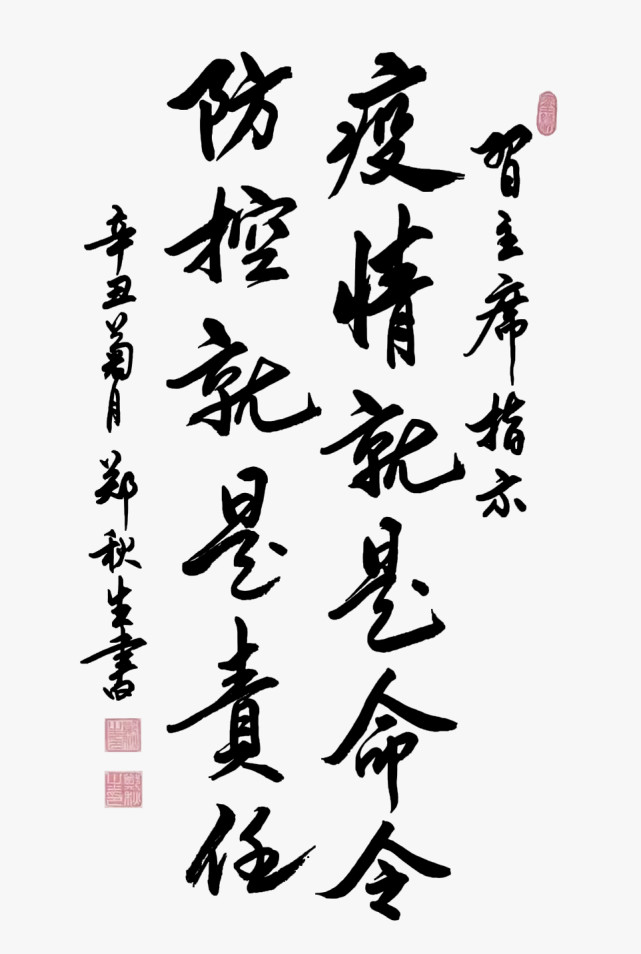 習主席指示
疫情就是命令
防控就是責任
辛丑菊月郑秋生書